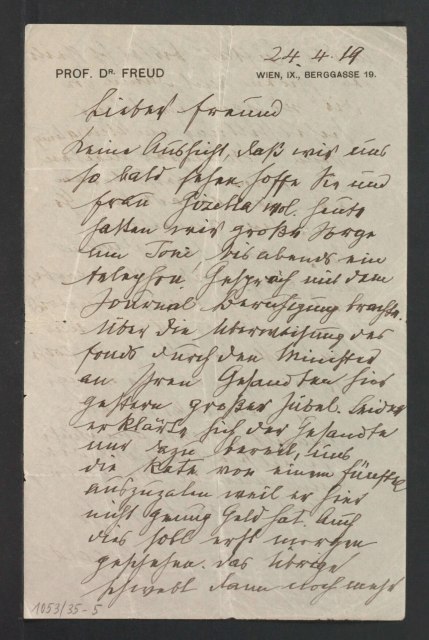 24. 4. 19
PROF. DR. FREUD
WIEN, IX., BERGGASSE 19.
Lieber Freund
Keine Aussicht, daß wir uns
so bald sehen, hoffe Sie und
Frau Gizella wol. Heute
hatten wir große Sorge
um Toni bis abends ein
telephon. Gespräch mit dem
Journal Beruhigung brachte.
Über die Überweisung des
Fonds durch den Minister
an Ihren Gesandten hier
gestern großer Jubel. Leider
erklärte sich der Gesandte
nur dazu bereit, uns
die Rate von einem Fünftel
auszuzalen weil er hier
nicht genug Geld hat. Auch
dies soll erst morgen
geschehen. Das übrige
schwebt dann noch mehr
1053/35-5